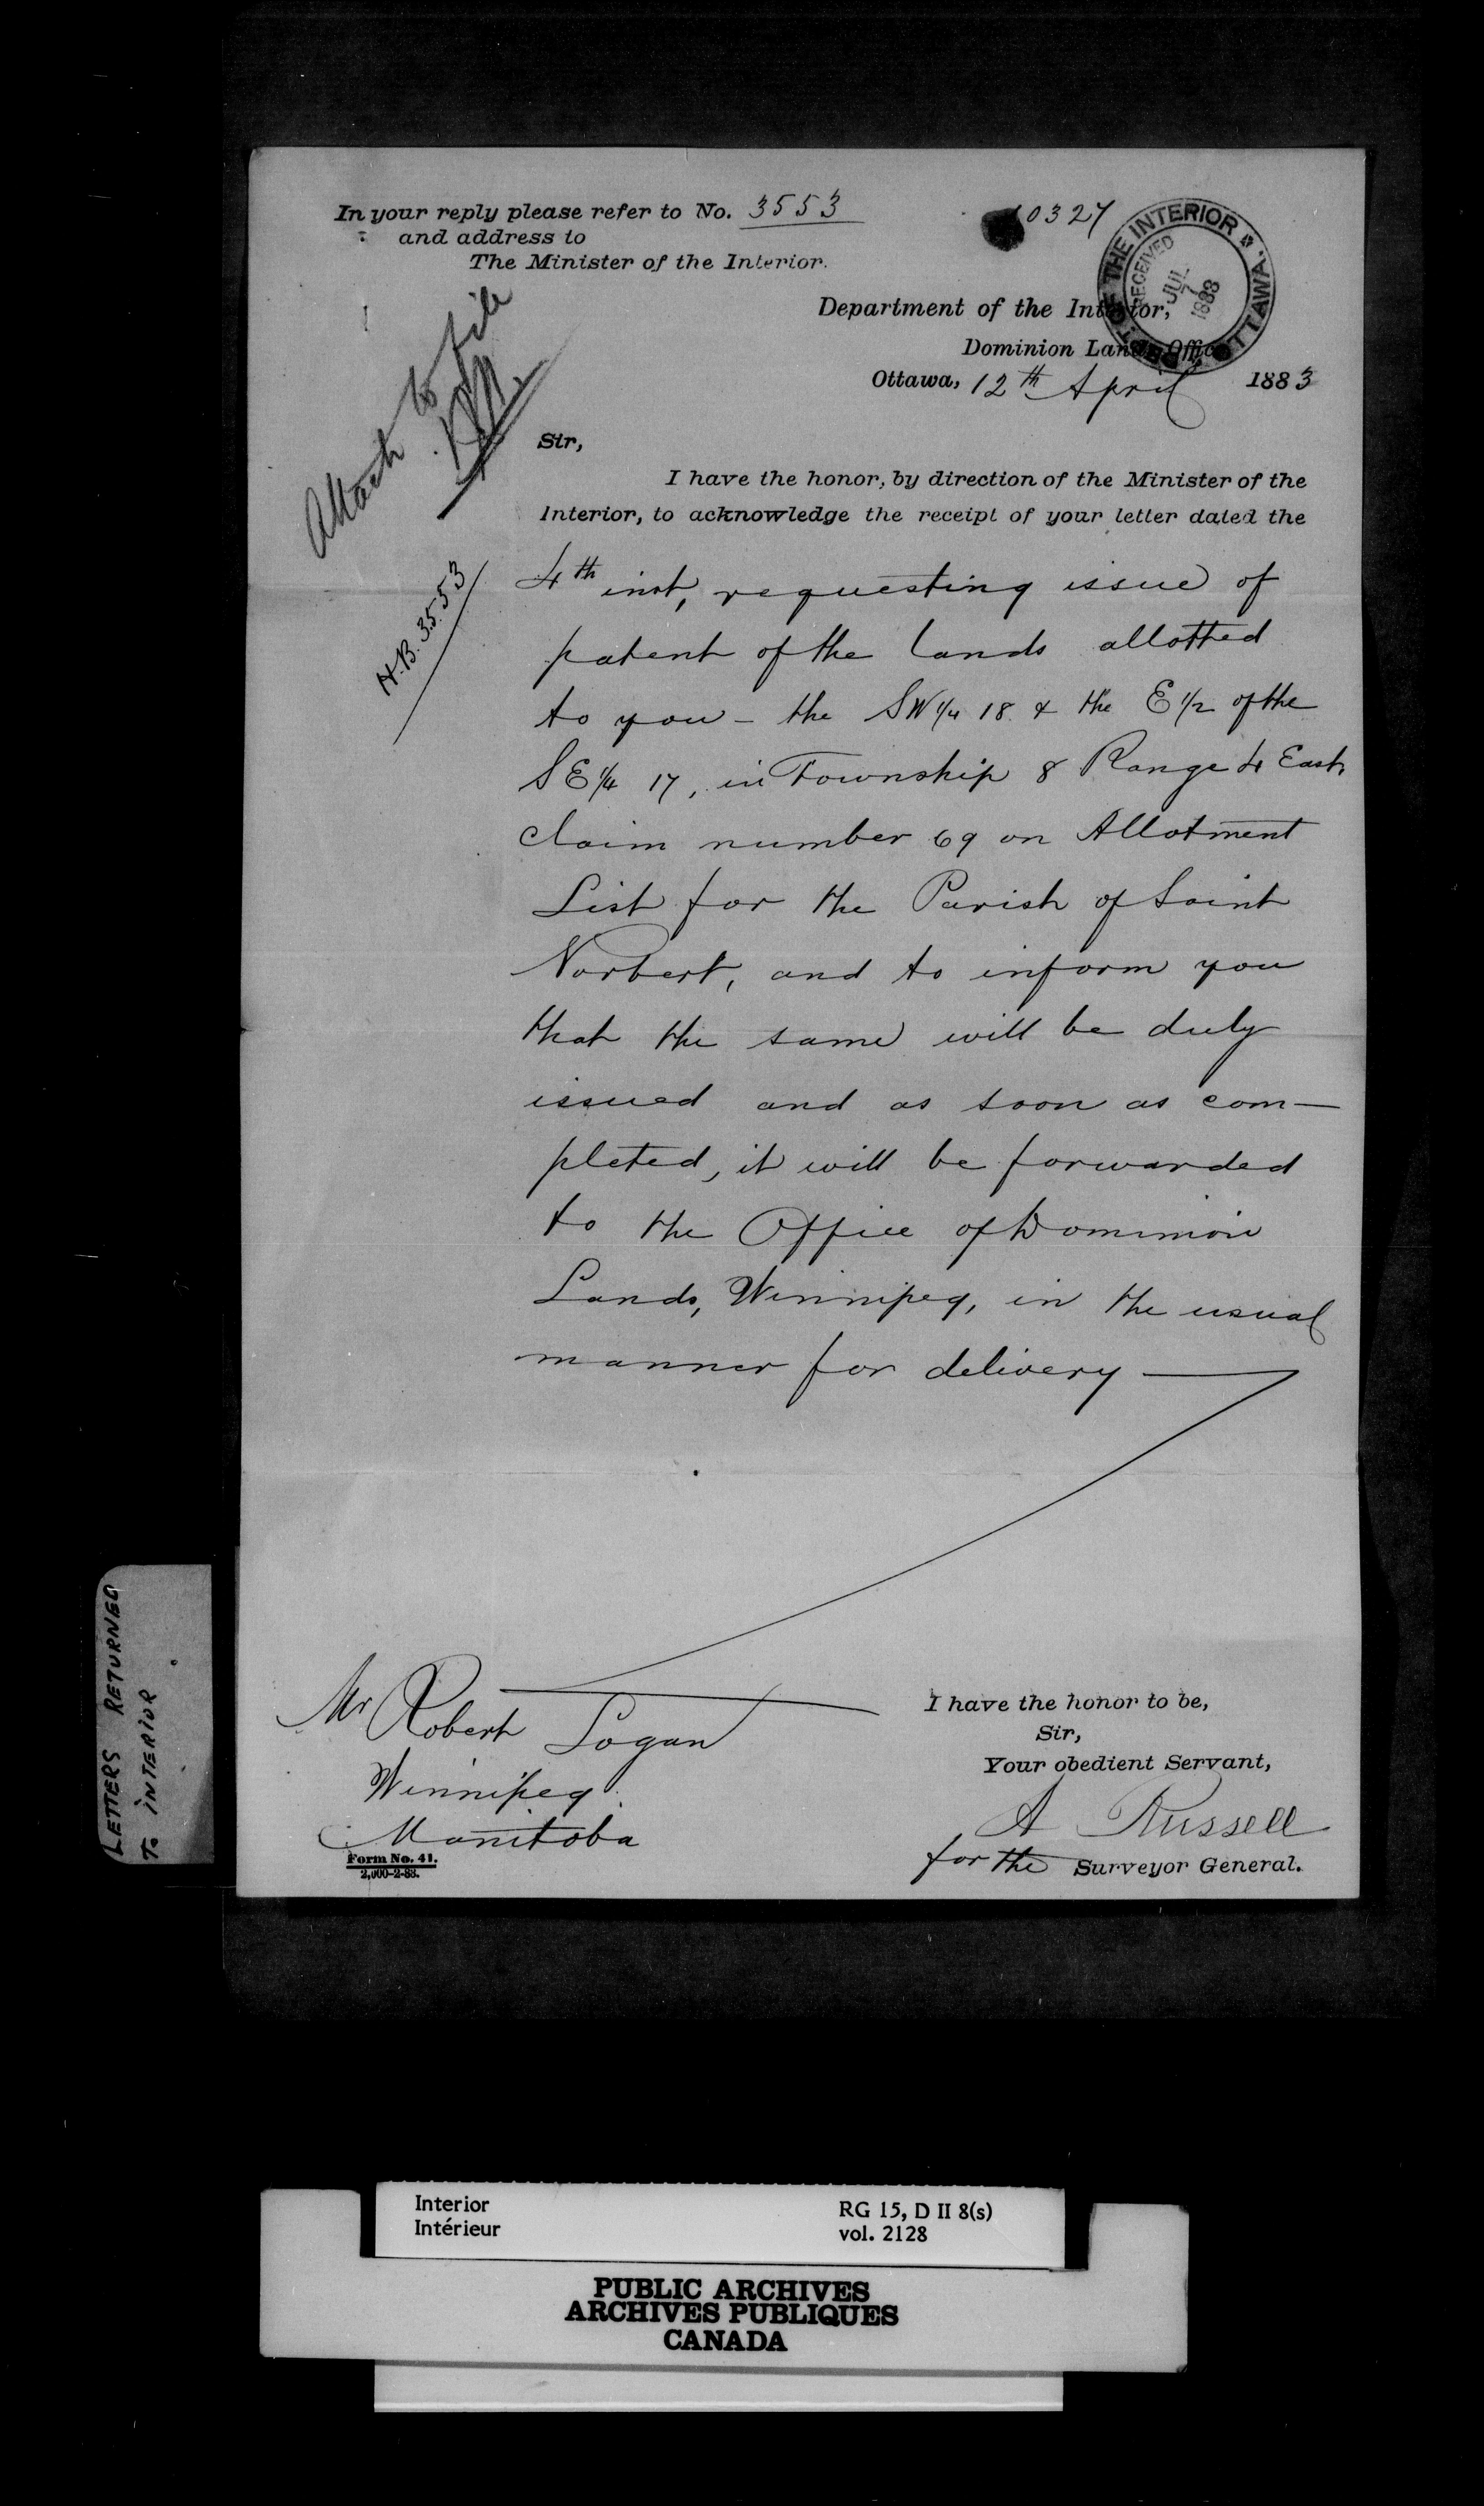 In your reply please refer to No. 3553
and address to
The Minister of the Interior.
10327
DEPT. OF THE INTERIOR OTTAWA.
RECEIVED
JUL
7
1883
Department of the Interior,
Dominion Lands Office
Ottawa, 12th April 1883
Attach to file
H.B. 3553
Sir,
I have the honor, by direction of the Minister of the
Interior, to acknowledge the receipt of your letter dated the
4th inst, requesting issue of
patent of the lands allotted
to you - the SW 1/4 18 & the E 1/2 of the
SE 1/4 17, in Township 8 Range 4 East,
claim number 69 on Allotment
List for the Parish of Saint
Norbert, and to inform you
that the same will be duly
issued and as soon as com-
pleted, it will be forwarded
to the Office of Dominion
Lands, Winnipeg, in the usual
manner for delivery
I have the honor to be,
Sir,
Your obedient Servant,
A Russell
for the Surveyor General.
Mr Robert Logan
Winnipeg
Manitoba
Form No. 41.
2,000-2-83.
LETTERS RETURNED
To INTERIOR
Interior
Intérieur
RG 15, D II 8(s)
vol. 2128
PUBLIC ARCHIVES
ARCHIVES PUBLIQUES
CANADA